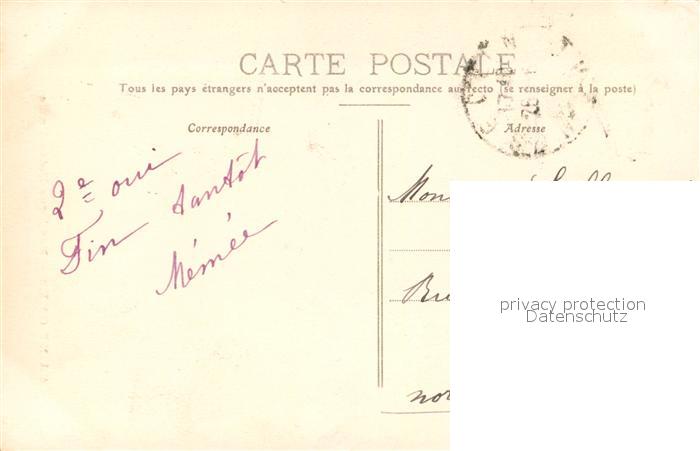 CARTE POSTALE
Tous les pays étrangers n'acceptent pas la correspondance au recto (se renseigner à la poste)
Correspondance
Adresse
2e oui
Fin tantôt
Mémée
privacy protection
Datenschutz